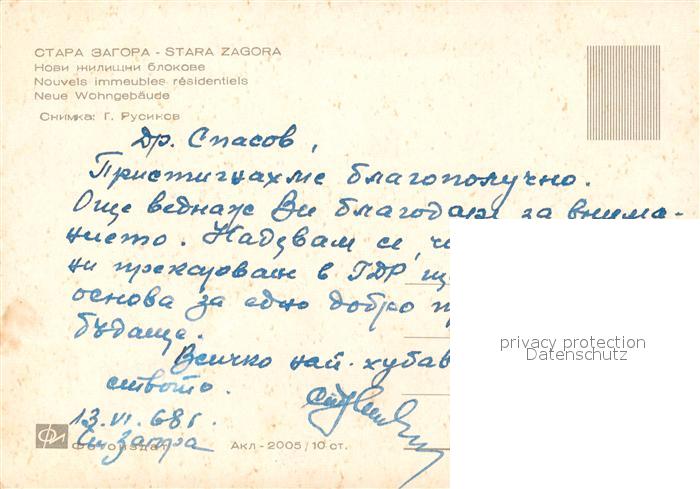 СТАРА ЗАГОРА - STARA ZAGORA
Нови жилищни блокове
Nouvels immeubles résidentiels
Neue Wohngebäude
Снимка: Г. Русинов
Др. Спасов,
Пристигнахме благополучно.
Още веднаж Ви благодаря за внима-
нието. Надявам се, че
ни прекарован в ГДР ще
основа за едно добро
бъдаще.
Всичко най-хубав
ството.
13.VI.68г.
Ст. Загора
Фотоиздат
Акл - 2005 / 10 ст.
privacy protection
Datenschutz